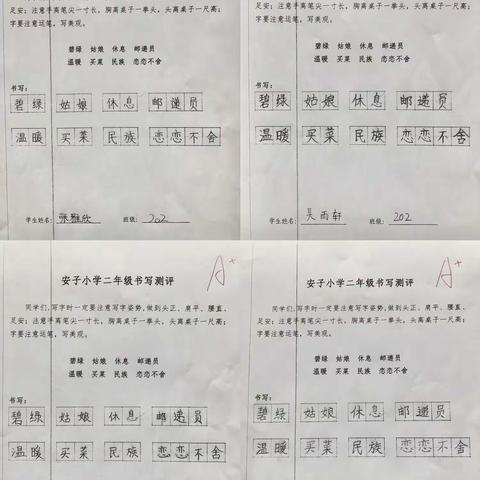 足安；注意手离笔尖一寸长，胸离桌子一拳头，头离桌子一尺高；
字要注意运笔，写美观。
碧绿 姑娘 休息 邮递员
温暖 买菜 民族 恋恋不舍
书写：
碧绿 姑娘 休息 邮递员
温暖 买菜 民族 恋恋不舍
学生姓名： 张雅欣 班级： 202
足安；注意手离笔尖一寸长，胸离桌子一拳头，头离桌子一尺高；
字要注意运笔，写美观。
碧绿 姑娘 休息 邮递员
温暖 买菜 民族 恋恋不舍
书写：
碧绿 姑娘 休息 邮递员
温暖 买菜 民族 恋恋不舍
学生姓名： 吴雨轩 班级： 202
A+
安子小学二年级书写测评
同学们，写字时一定要注意写字姿势，做到头正、肩平、腰直、
足安；注意手离笔尖一寸长，胸离桌子一拳头，头离桌子一尺高；
字要注意运笔，写美观。
碧绿 姑娘 休息 邮递员
温暖 买菜 民族 恋恋不舍
书写：
碧绿 姑娘 休息 邮递员
温暖 买菜 民族 恋恋不舍
A+
安子小学二年级书写测评
同学们，写字时一定要注意写字姿势，做到头正、肩平、腰直、
足安；注意手离笔尖一寸长，胸离桌子一拳头，头离桌子一尺高；
字要注意运笔，写美观。
碧绿 姑娘 休息 邮递员
温暖 买菜 民族 恋恋不舍
书写：
碧绿 姑娘 休息 邮递员
温暖 买菜 民族 恋恋不舍